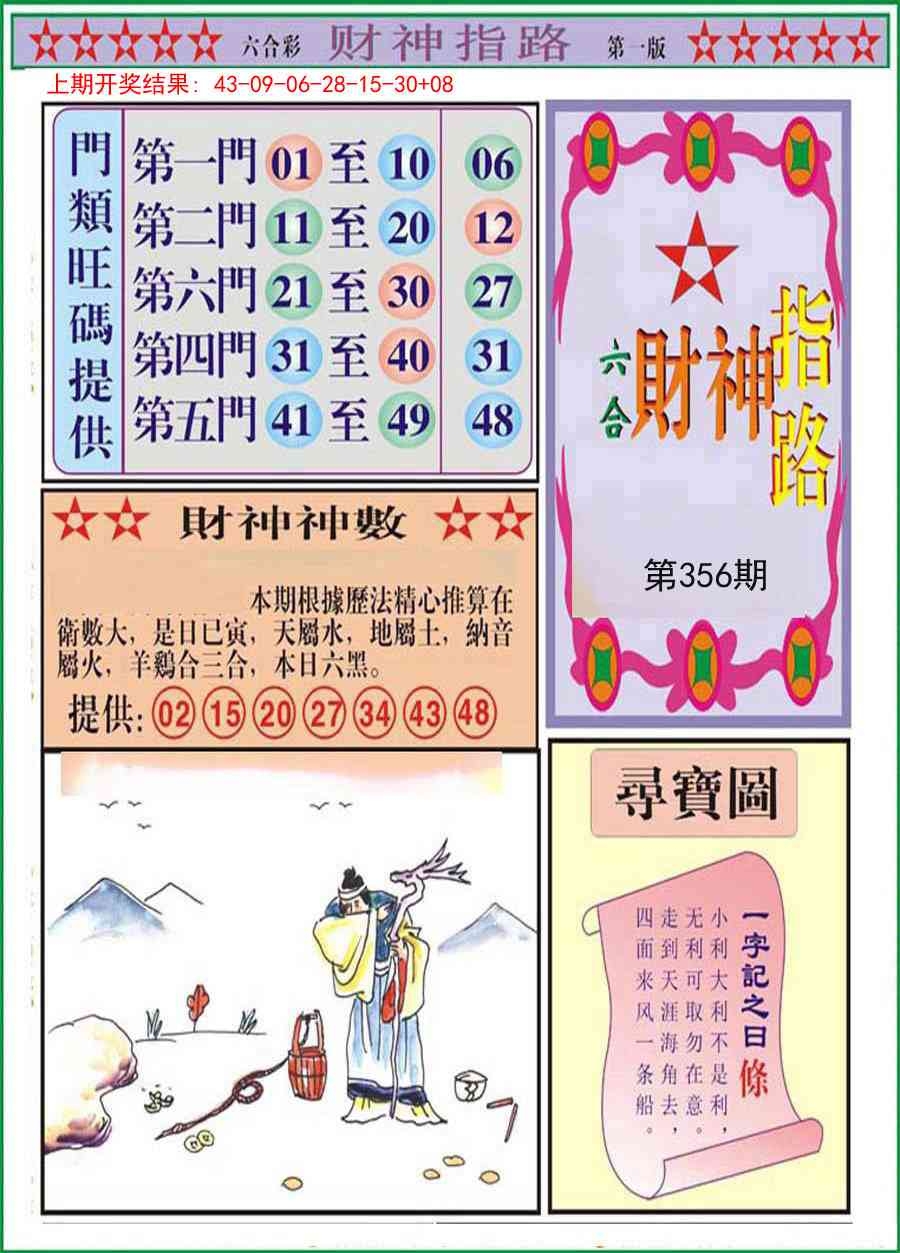 六合彩 财神指路 第一版
上期开奖结果：43-09-06-28-15-30+08
門類旺碼提供
第一門 01 至 10 06
第二門 11 至 20 12
第六門 21 至 30 27
第四門 31 至 40 31
第五門 41 至 49 48
六合
財神
指路
第356期
財神神數
本期根據歷法精心推算在
衛數大，是日已寅，天屬水，地屬土，納音
屬火，羊鷄合三合，本日六黑。
提供: 02 15 20 27 34 43 48
尋寶圖
一字記之日 條
小利大利不是利，
无利可取勿在意。
走到天涯海角去，
四面来风一条船。